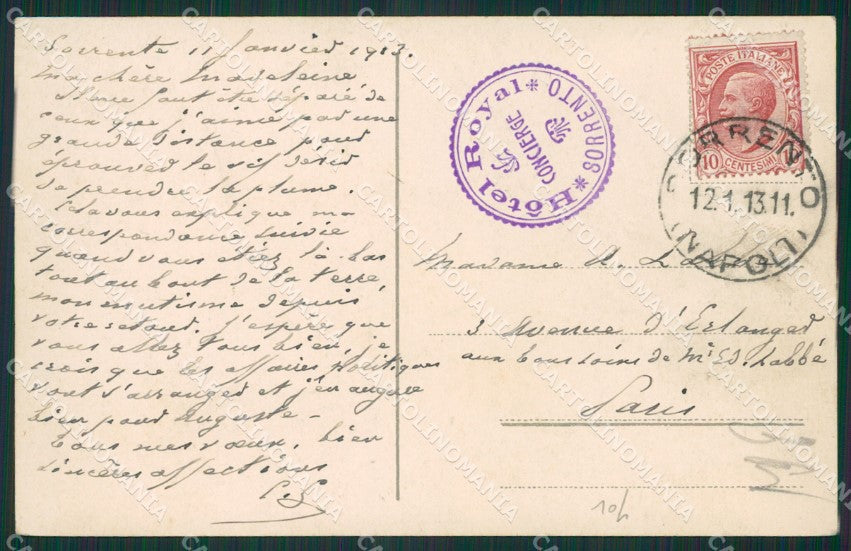 Sorrente 11 Janvier 1913.
Ma chère Madeleine
Il me faut être séparé de
ceux que j'aime par une
grande distance pour
éprouver le vif désir
de prendre la plume.
Cela vous explique ma
correspondance suivie
quand vous étiez là-bas
tout au bout de la terre,
mon mutisme depuis
votre retour. J'espère que
vous allez tous bien, je
crois que les affaires politiques
vont s'arranger et j'en augure
bien pour Auguste -
Tous mes vœux, bien
sincères affections
Hôtel Royal
CONCIERGE
SORRENTO
POSTE ITALIANE
10 CENTESIMI
SORRENTO
12.1.13.11.
(NAPOLI)
Madame A.
3 Avenue d'Erlanger
aux bons soins de Mr Ed. Labbé
Paris
CARTOLINOMANIA